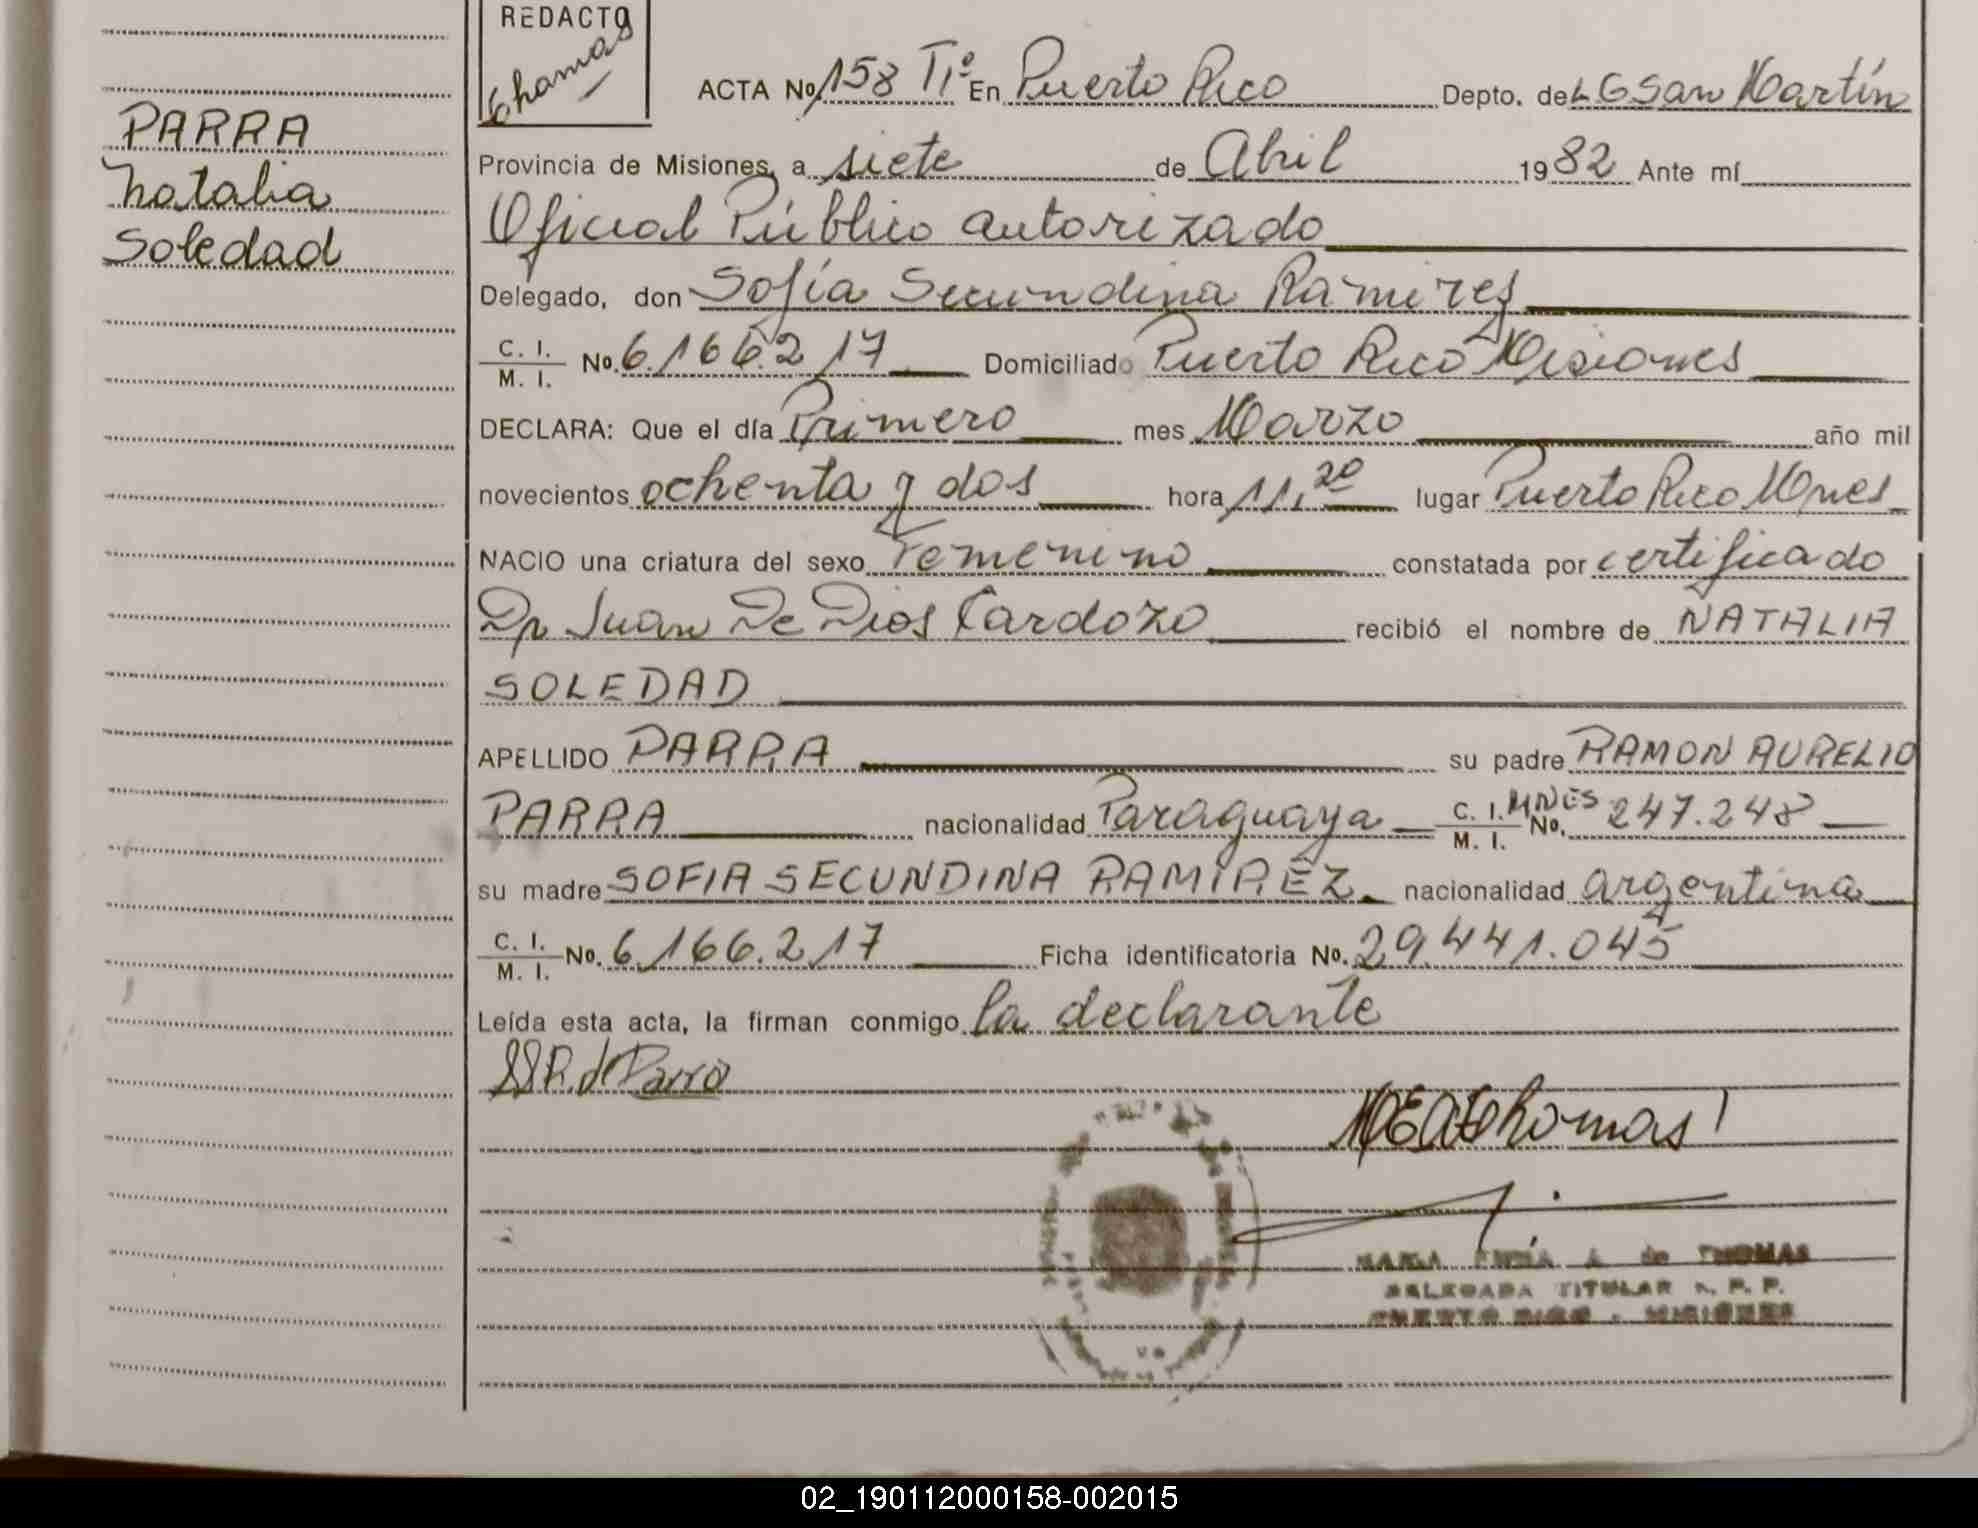 REDACTO
Thomas
PARRA
Natalia
Soledad
ACTA No. 158 Tº I En Puerto Rico Depto. de L G San Martín
Provincia de Misiones, a siete de Abril 1982 Ante mí
Oficial Público autorizado
Delegado, don Sofía Secundina Ramirez
C. I. / M. I. No. 6.166.217 Domiciliado Puerto Rico Misiones
DECLARA: Que el día Primero mes Marzo año mil
novecientos ochenta y dos hora 11,20 lugar Puerto Rico Mnes
NACIO una criatura del sexo Femenino constatada por certificado
Dr Juan De Dios Cardozo recibió el nombre de NATALIA
SOLEDAD
APELLIDO PARRA su padre RAMON AURELIO
PARRA nacionalidad Paraguaya C. I. / M. I. MNES No. 247.248
su madre SOFIA SECUNDINA RAMIREZ nacionalidad argentina
C. I. / M. I. No. 6.166.217 Ficha identificatoria No. 29.441.045
Leída esta acta, la firman conmigo la declarante
SSR. de Parra
MEAThomas
MARIA A. de THOMAS
DELEGADA TITULAR R. P. P.
PUERTO RICO - MISIONES
02_190112000158-002015